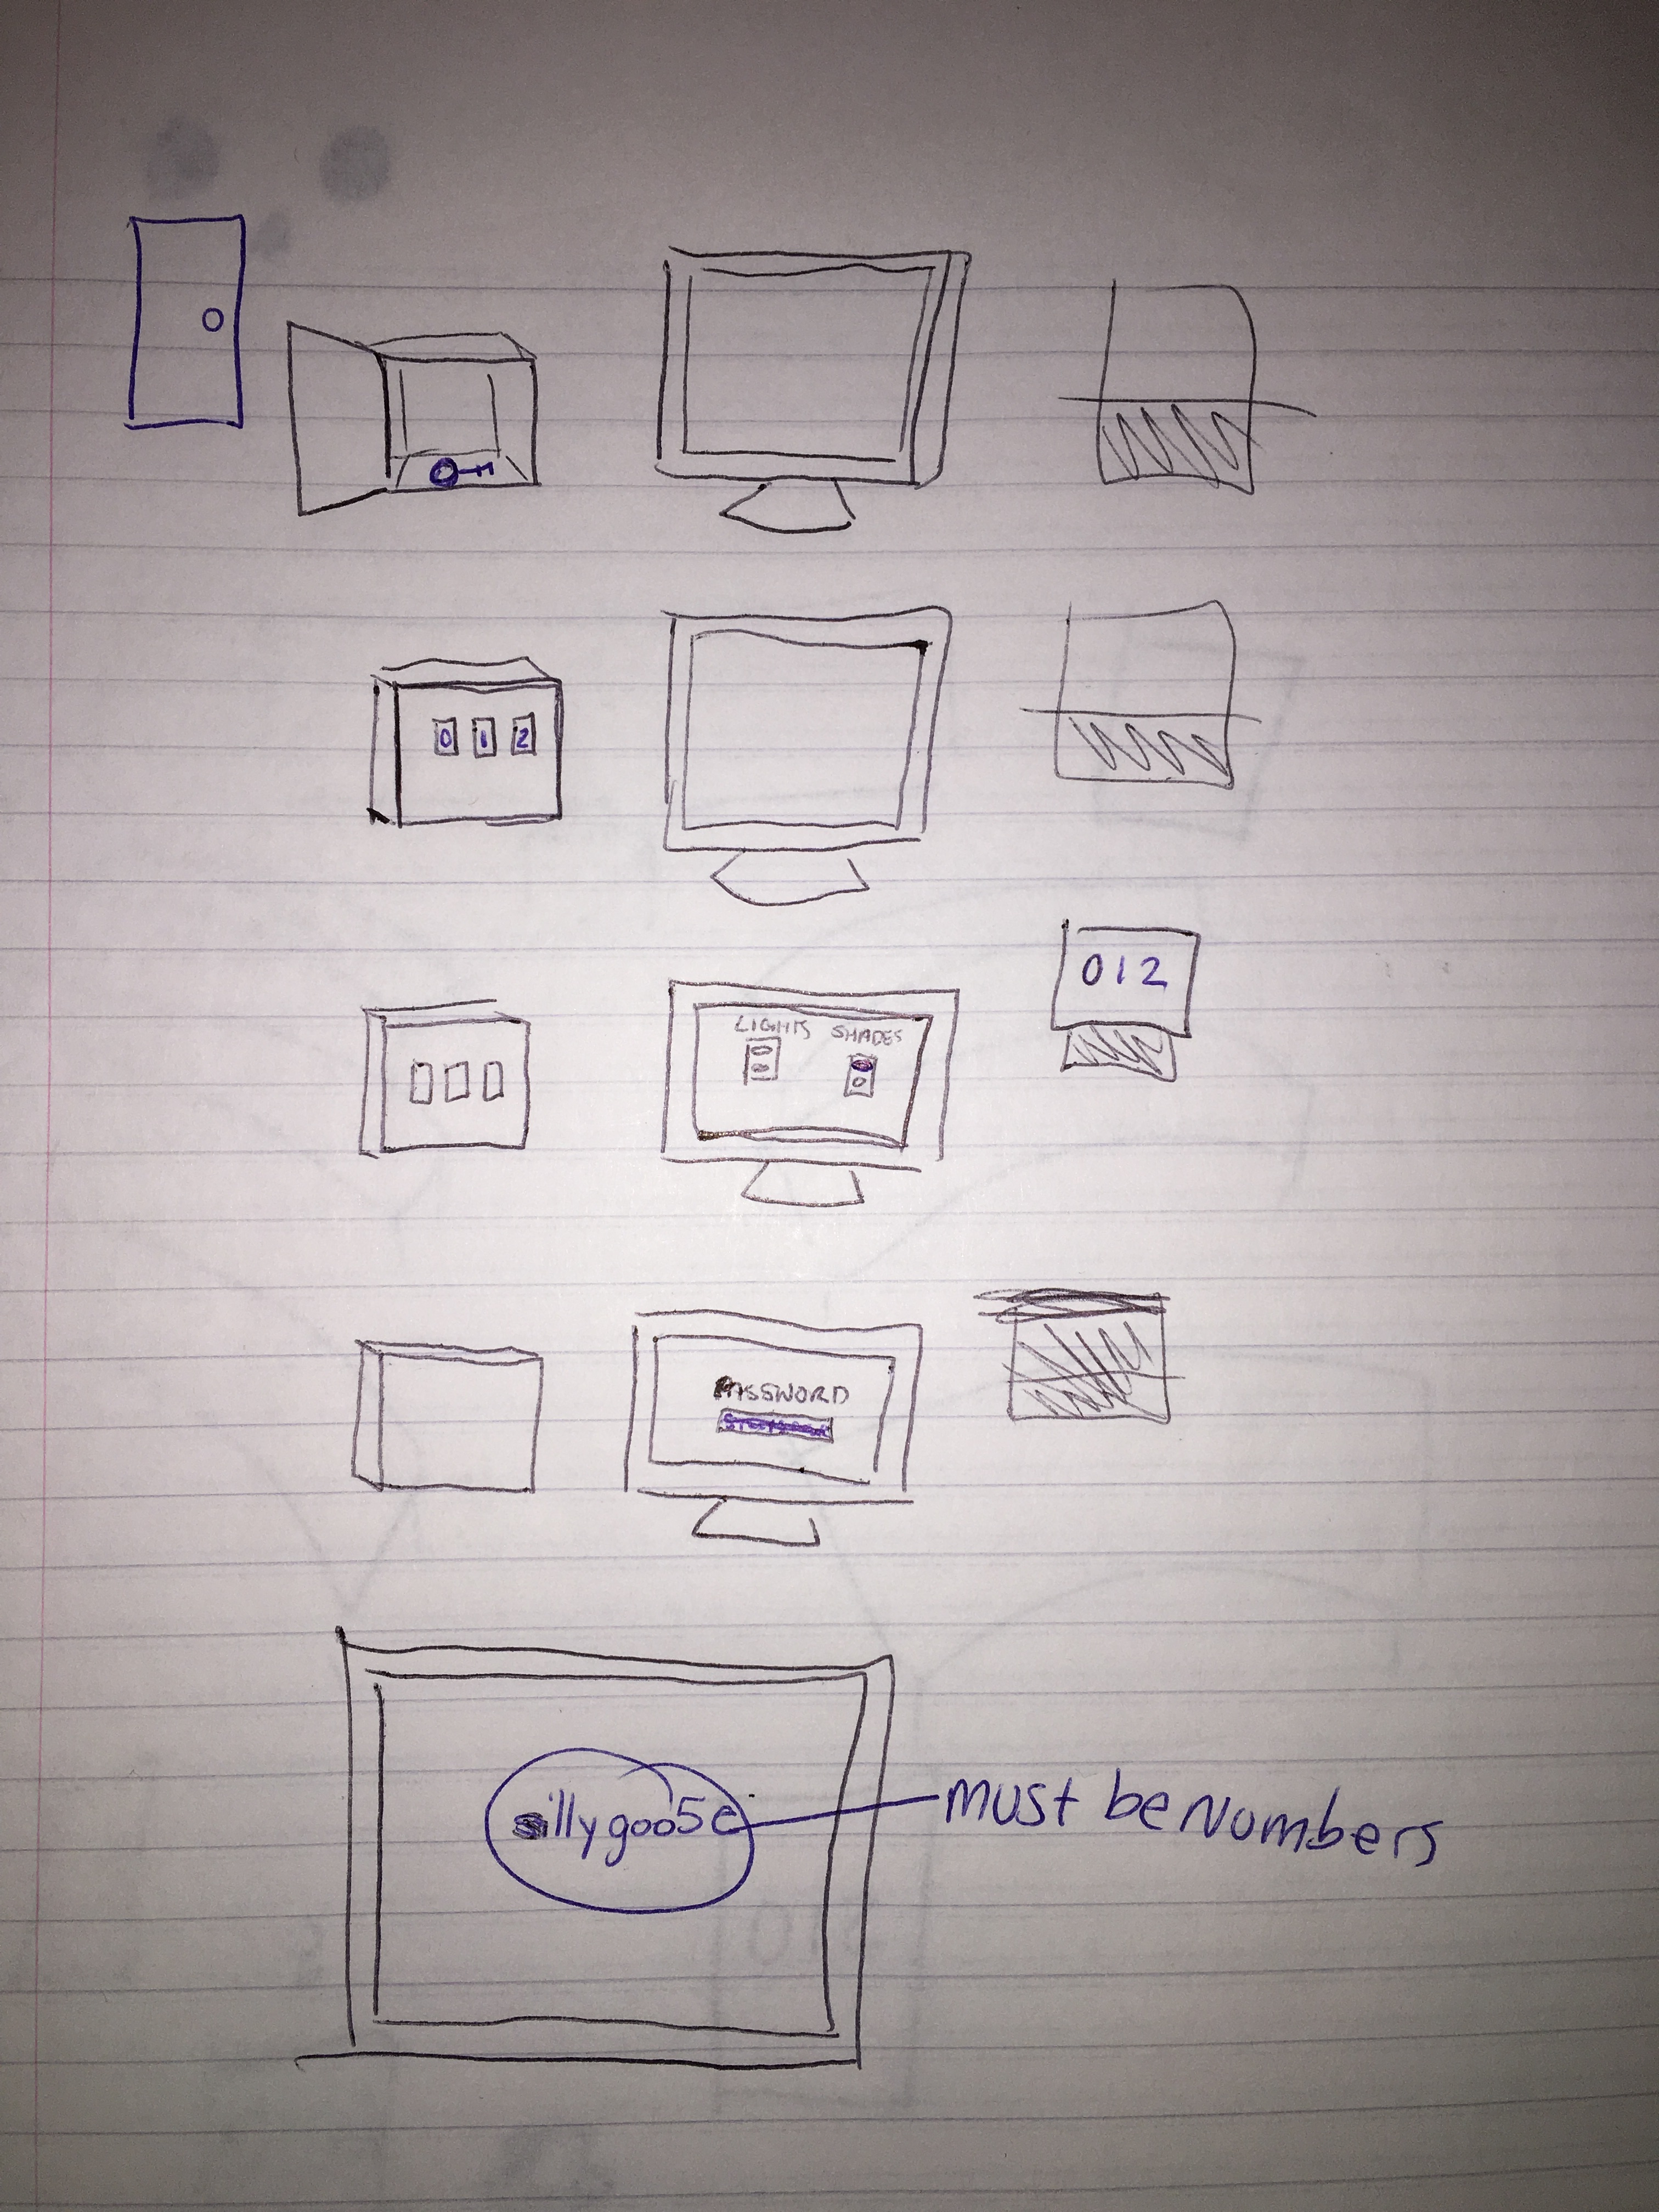 0 1 2
012
LIGHTS SHADES
PASSWORD
sillygoo5e
must be Numbers